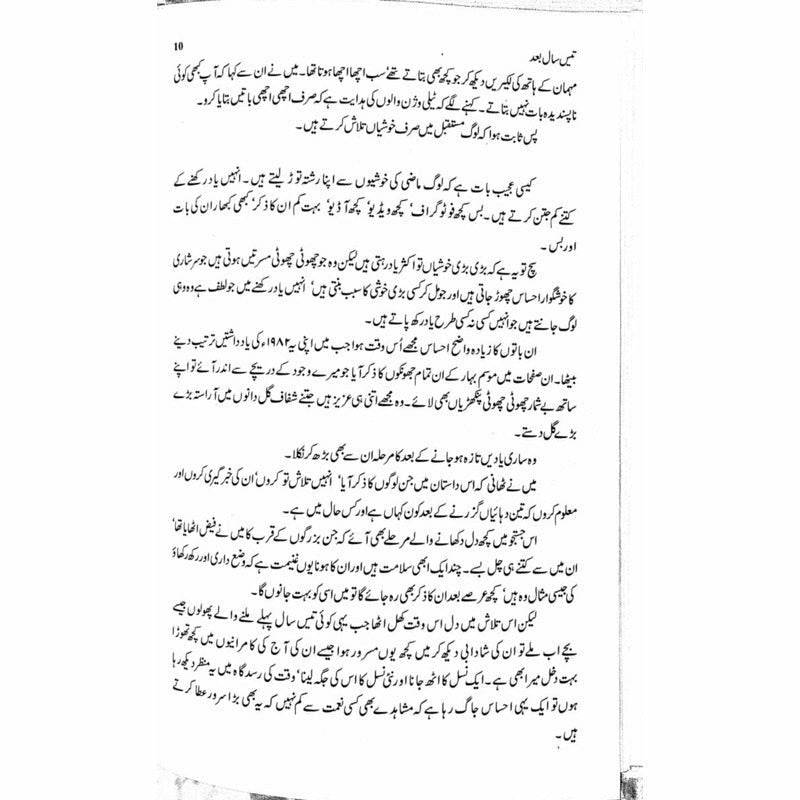 تیس سال بعد
10
مہمان کے ہاتھ کی لکیریں دیکھ کر جو کچھ بھی بتاتے تھے‘ سب اچھا اچھا ہوتا تھا۔ میں نے ان سے کہا کہ آپ کبھی کوئی
ناپسندیدہ بات نہیں بتاتے۔ کہنے لگے کہ ٹیلی وژن والوں کی ہدایت ہے کہ صرف اچھی اچھی باتیں بتایا کرو۔
پس ثابت ہوا کہ لوگ مستقبل میں صرف خوشیاں تلاش کرتے ہیں۔
کیسی عجیب بات ہے کہ لوگ ماضی کی خوشیوں سے اپنا رشتہ توڑ لیتے ہیں۔ انہیں یاد رکھنے کے
کتنے کم جتن کرتے ہیں۔ بس کچھ فوٹو گراف‘ کچھ ویڈیو‘ کچھ آڈیو‘ بہت کم ان کا ذکر‘ کبھی کبھار ان کی بات
اور بس۔
سچ تو یہ ہے کہ بڑی بڑی خوشیاں تو اکثر یاد رہتی ہیں لیکن وہ جو چھوٹی چھوٹی مسرتیں ہوتی ہیں جو سرشاری
کا خوشگوار احساس چھوڑ جاتی ہیں اور جو مل کر کسی بڑی خوشی کا سبب بنتی ہیں‘ انہیں یاد رکھنے میں جو لطف ہے وہ وہی
لوگ جانتے ہیں جو انہیں کسی نہ کسی طرح یاد رکھ پاتے ہیں۔
ان باتوں کا زیادہ واضح احساس مجھے اُس وقت ہوا جب میں اپنی یہ ۱۹۸۲ء کی یادداشتیں ترتیب دینے
بیٹھا۔ ان صفحات میں موسم بہار کے ان تمام جھونکوں کا ذکر آیا جو میرے وجود کے دریچے سے اندر آئے تو اپنے
ساتھ بے شمار چھوٹی چھوٹی پنکھڑیاں بھی لائے۔ وہ مجھے اتنی ہی عزیز ہیں جتنے شفاف گل دانوں میں آراستہ بڑے
بڑے گل دستے۔
وہ ساری یادیں تازہ ہو جانے کے بعد کا مرحلہ ان سے بھی بڑھ کر نکلا۔
میں نے ٹھانی کہ اس داستان میں جن لوگوں کا ذکر آیا‘ انہیں تلاش تو کروں‘ ان کی خبر گیری کروں اور
معلوم کروں کہ تین دہائیاں گزرنے کے بعد کون کہاں ہے اور کس حال میں ہے۔
اس جستجو میں کچھ دل دکھانے والے مرحلے بھی آئے کہ جن بزرگوں کے قرب کا میں نے فیض اٹھایا تھا‘
ان میں سے کتنے ہی چل بسے۔ چند ایک ابھی سلامت ہیں اور ان کا ہونا یوں غنیمت ہے کہ وضع داری اور رکھ رکھاؤ
کی جیسی مثال وہ ہیں‘ کچھ عرصے بعد ان کا ذکر بھی رہ جائے گا تو میں اسی کو بہت جانوں گا۔
لیکن اس تلاش میں دل اس وقت کھل اٹھا جب یہی کوئی تیس سال پہلے ملنے والے پھولوں جیسے
بچے اب ملے تو ان کی شادابی دیکھ کر میں کچھ یوں مسرور ہوا جیسے ان کی آج کی کامرانیوں میں کچھ تھوڑا
بہت دخل میرا بھی ہے۔ ایک نسل کا اٹھ جانا اور نئی نسل کا اس کی جگہ لینا‘ وقت کی رسد گاہ میں یہ منظر دیکھ رہا
ہوں تو ایک یہی احساس جاگ رہا ہے کہ مشاہدے بھی کسی نعمت سے کم نہیں کہ یہ بھی بڑا سرور عطا کرتے
ہیں۔